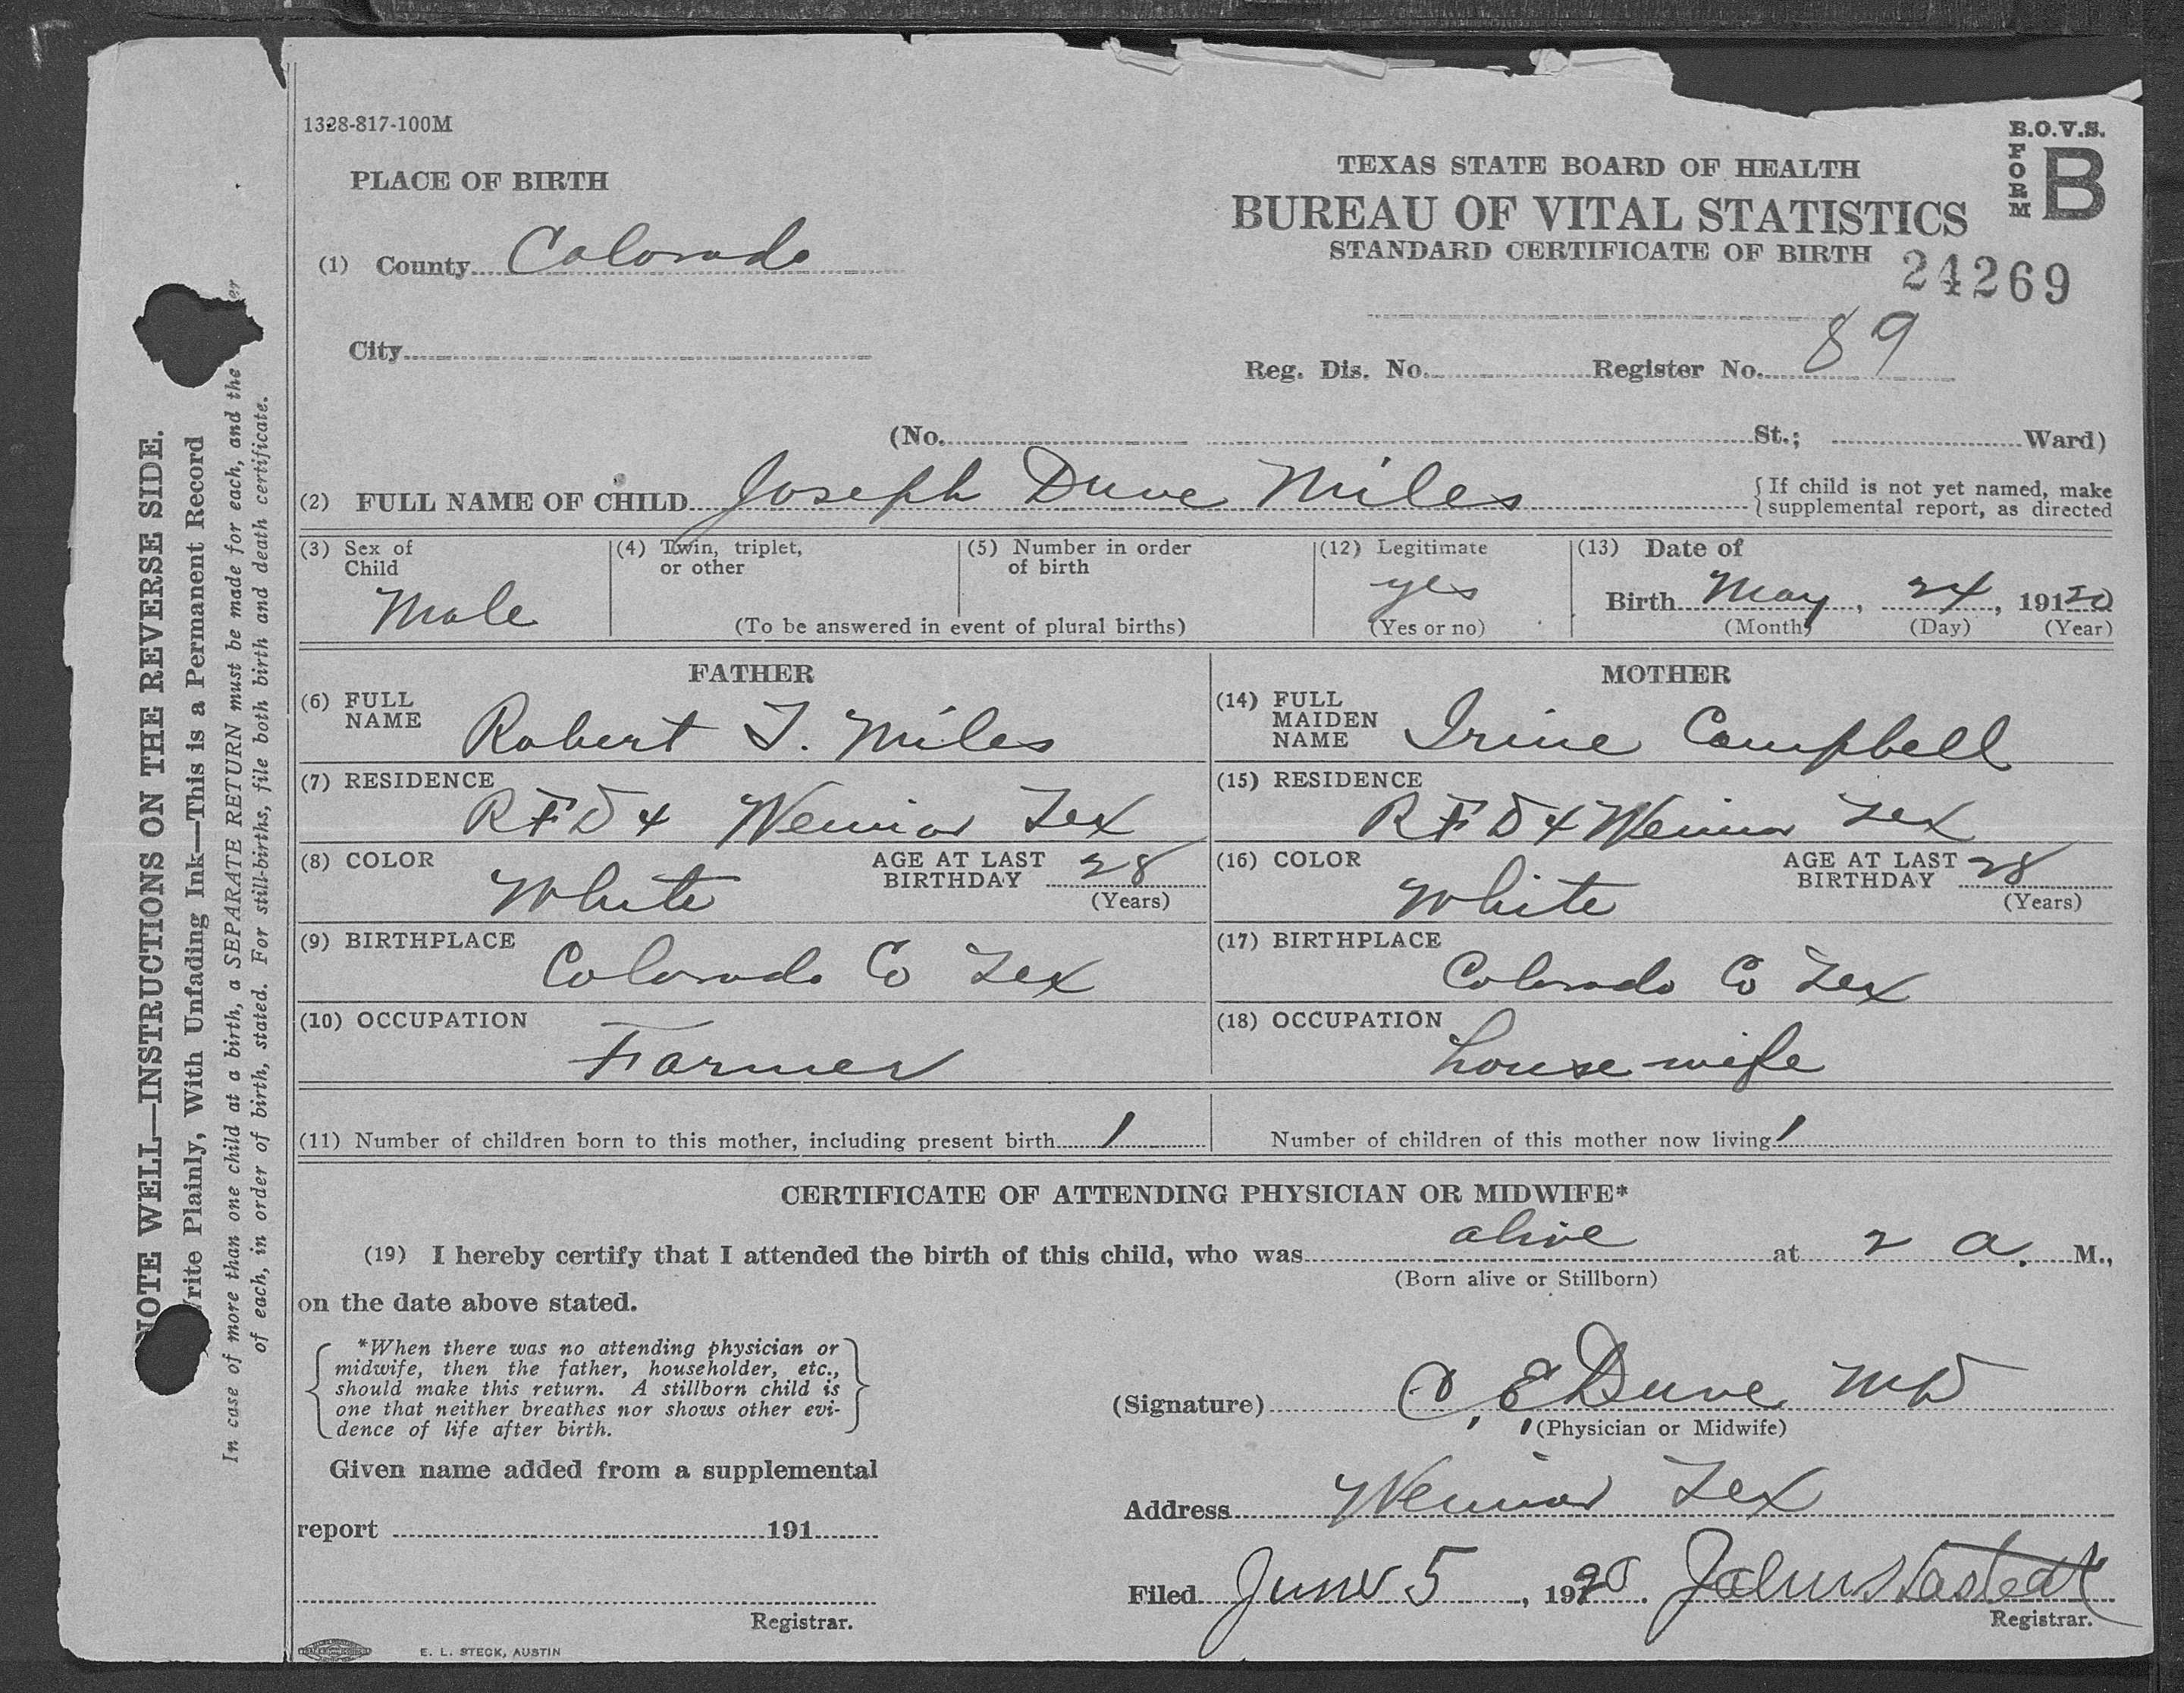 1328-817-100M
B.O.V.S.
FORM B
PLACE OF BIRTH
TEXAS STATE BOARD OF HEALTH
BUREAU OF VITAL STATISTICS
STANDARD CERTIFICATE OF BIRTH
24269
(1) County Colorado
City
Reg. Dis. No. Register No. 89
(No. St.; Ward)
(2) FULL NAME OF CHILD Joseph Duve Miles {If child is not yet named, make supplemental report, as directed
(3) Sex of Child Male
(4) Twin, triplet, or other
(5) Number in order of birth
(To be answered in event of plural births)
(12) Legitimate yes (Yes or no)
(13) Date of Birth May, 24, 19120
(Month) (Day) (Year)
FATHER
(6) FULL NAME Robert T. Miles
(7) RESIDENCE RFD 4 Weimar Tex
(8) COLOR White AGE AT LAST BIRTHDAY 28 (Years)
(9) BIRTHPLACE Colorado Co Tex
(10) OCCUPATION Farmer
MOTHER
(14) FULL MAIDEN NAME Irine Campbell
(15) RESIDENCE RFD 4 Weimar Tex
(16) COLOR White AGE AT LAST BIRTHDAY 28 (Years)
(17) BIRTHPLACE Colorado Co Tex
(18) OCCUPATION housewife
(11) Number of children born to this mother, including present birth 1 Number of children of this mother now living 1
CERTIFICATE OF ATTENDING PHYSICIAN OR MIDWIFE*
(19) I hereby certify that I attended the birth of this child, who was alive at 2 a. M.,
(Born alive or Stillborn)
on the date above stated.
{*When there was no attending physician or
midwife, then the father, householder, etc.,
should make this return. A stillborn child is
one that neither breathes nor shows other evi-
dence of life after birth.}
(Signature) C. E. Duve MD
(Physician or Midwife)
Given name added from a supplemental
report 191
Registrar.
Address Weimar Tex
Filed June 5, 1920. Registrar.
E. L. STECK, AUSTIN
NOTE WELL—INSTRUCTIONS ON THE REVERSE SIDE.
rite Plainly, With Unfading Ink—This is a Permanent Record
In case of more than one child at a birth, a SEPARATE RETURN must be made for each, and the er
of each, in order of birth, stated. For still-births, file both birth and death certificate.